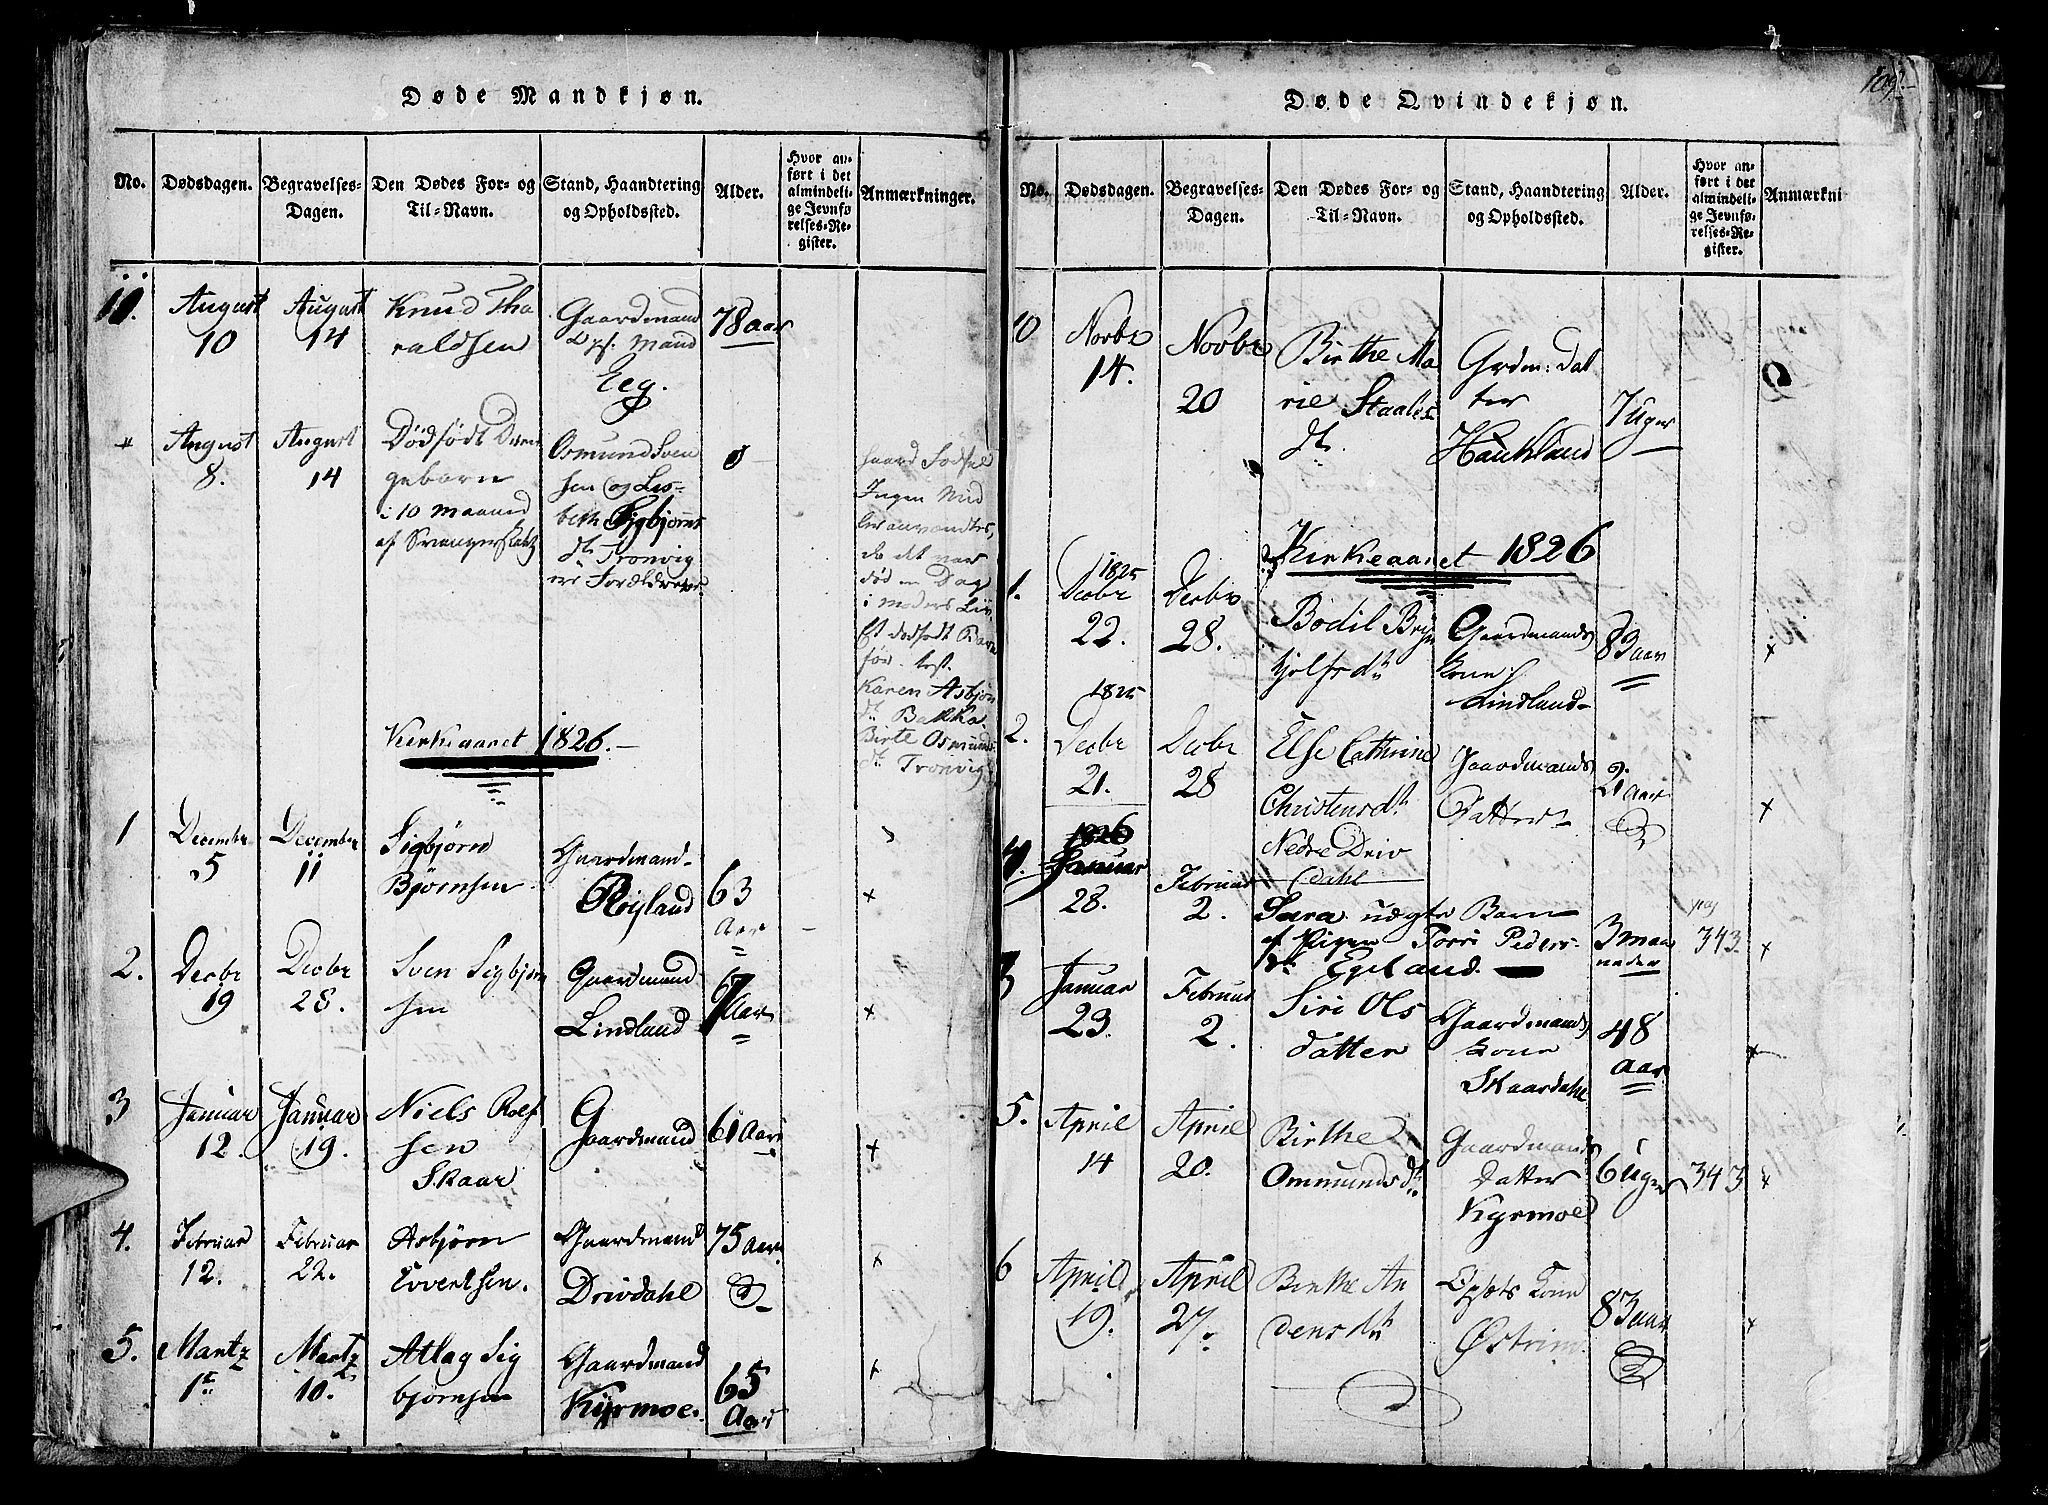 109.
Døde Mandkjøn.
No. Dødsdagen. Begravelses-Dagen. Den Dødes For- og Til-Navn. Stand, Haandtering og Opholdssted. Alder. Hvor anført i det almindelige Jevnførelses-Register. Anmærkninger.
11. August 10 August 14 Knud Tharaldsen Gaardmand Eeg. 78 aar
+ August 8. August 14 Dødfødt
i 10 Maaned
Osmund Svensen og Lisbeth Sigbjørns dtr. Tronvig
haard Fødsel
Ingen Midler anvendtes,
da det var
død en Dag
i moders Liv.
Karen Asbjørn
dtr. Bakka.
Birte Osmunds
dtr. Tronvig
Kirkeaaret 1826.-
1 December 5 December 11 Sigbjørn Bjørnsen Gaardmand Röyland 63 Aar x
2. Decbr 19 Decbr 28. Sven Sigbjørnsen Gaardmand Lindland 67 Aar x
3 Januar 12. Januar 19. Niels Rolfsen Skaar Gaardmand 61 Aar x
4. Februar 12. Februar 22. Asbjørn Evertsen. Gaardmand Drivdahl 75 Aar x
5. Martz 1st Martz 10. Atlag Sigbjørnsen Gaardmand Kyrmoe. 65 Aar x
Døde Qvindekjøn.
No. Dødsdagen. Begravelses-Dagen. Den Dødes For- og Til-Navn. Stand, Haandtering og Opholdssted. Alder. Hvor anført i det almindelige Jevnførelses-Register. Anmærkni
10 Novbr 14. Novbr 20 Birthe Marie Staalesdtr. Grdm: Datter Haukland 7 Uger
Kirkeaaret 1826
1. 1825 Decbr 22. Decbr 28. Bodil Brynjolfsdtr Gaardmands kone Lindland 83 aar x
2. 1825 Decbr 21. Decbr 28 Else Cathrine Christensdtr. Nedre Drivdahl Gaardmands Datter 21 Aar x
4. 1826 Januar 28. Februar 2. Sara uægte Barn af Pigen Torri Pedersdtr. Egeland. 3 maaneder pag 343 x
3 Januar 23. Februar 2. Siri Olsdatter Gaardmands kone Skaardahl 48 Aar x
5. April 14 April 20. Birthe Ommundsdtr. Gaardmands Datter Kyrmoe 6 Uger 343 x
6 April 19. April 27. Birthe Andensdtr Kone Østrim. 83 aar x